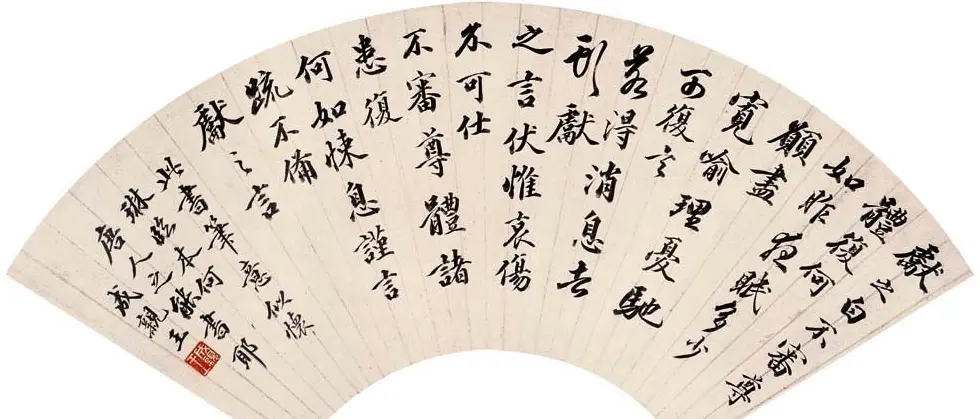 獻之白不審尊
體復何
如昨夜眠多少
願盡
寬喻理憂馳
可復言
若得消息去
形獻
之言伏惟哀傷
不可仕
不審尊體諸
患復
何如悚息謹言
疏不備
獻之言
此書筆意似懷
琳臨本何
唐人之能書耶
成親王